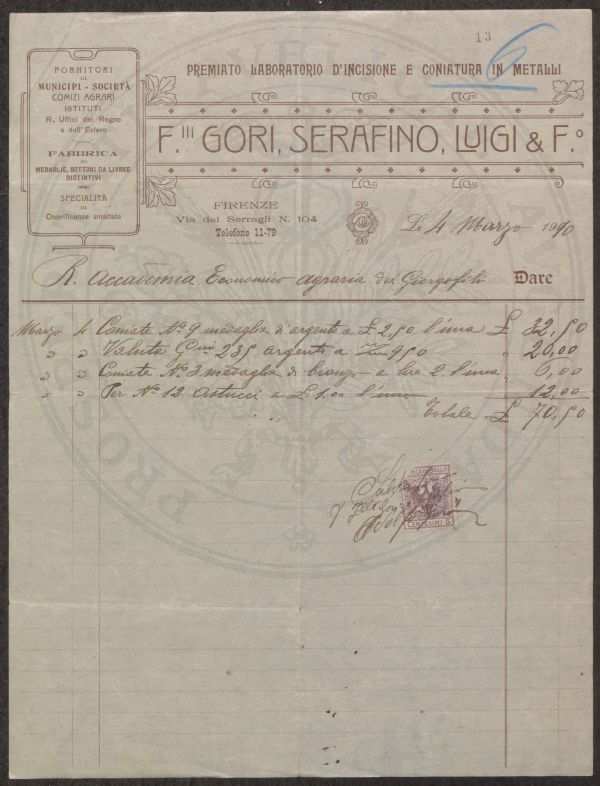 13
6
FORNITORI
DI
MUNICIPI - SOCIETÀ
COMIZI AGRARI
ISTITUTI
R. Uffici del Regno
e dell'Estero
FABBRICA
DI
MEDAGLIE, BOTTONI DA LIVREE
DISTINTIVI
SPECIALITÀ
IN
Onorificenze smaltate
PREMIATO LABORATORIO D'INCISIONE E CONIATURA IN METALLI
F.lli GORI, SERAFINO, LUIGI & F.o
FIRENZE
Via dei Serragli N. 104
Telefono 11-79
Li 4 Marzo 1910
R. Accademia Economico agraria dei Giorgofili Dare
Marzo 4 Coniate No 9 medaglia d'argento a £ 2,50 l'una £ 32,50
" " Valuta 235 argento a 950 " 20,00
" " Coniate No 3 medaglia di bronzo a lire 2. l'una " 6,00
" " Per No 12 Astucci a £ 1.00 l'uno 12,00
Totale £ 70,50
MARCA DA BOLLO
CENTESIMI 5